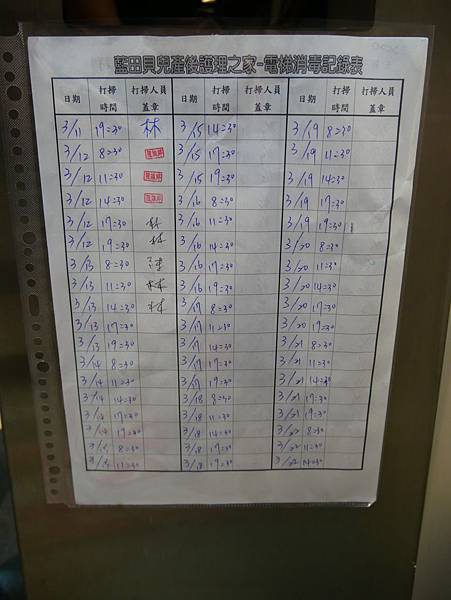 藍田貝兒產後護理之家-電梯消毒記錄表
日期 打掃時間 打掃人員蓋章 日期 打掃時間 打掃人員蓋章 日期 打掃時間 打掃人員蓋章
3/11 19:30 林 3/15 14:30 3/19 8:30
3/12 8:30 3/15 17:30 3/19 11:30
3/12 11:30 3/15 19:30 3/19 14:30
3/12 14:30 3/16 8:30 3/19 17:30
3/12 17:30 林 3/16 11:30 3/19 19:30
3/12 19:30 林 3/16 14:30 3/20 8:30
3/13 8:30 3/16 17:30 3/20 11:30
3/13 11:30 林 3/16 19:30 3/20 14:30
3/13 14:30 林 3/17 8:30 3/20 17:30
3/13 17:30 3/17 11:30 3/20 19:30
3/13 19:30 3/17 14:30 3/21 8:30
3/14 8:30 3/17 17:30 3/21 11:30
3/14 11:30 3/17 19:30 3/21 14:30
3/14 14:30 3/18 8:30 3/21 17:30
3/14 17:30 3/18 11:30 3/21 19:30
3/14 19:30 3/18 14:30 3/22 8:30
3/15 8:30 3/18 17:30 3/22 11:30
3/15 11:30 3/18 19:30 3/22 14:30